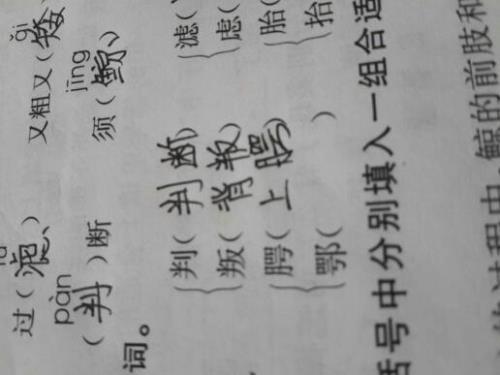 ǎi
过(滤) 又粗又(矮)
pàn jīng
(判)断 须(鲸)
词。
判(判断) 滤(
叛(背叛) 虑(
腭(上腭) 胎(
鄂( ) 抬(
括号中分别填入一组合适
过程中,鲸的前肢和